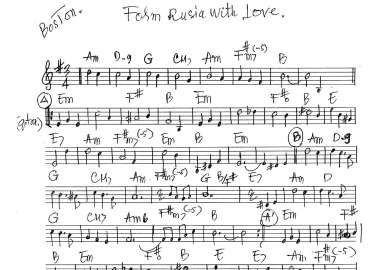 BosTon. Form Rusia with Love.
Am D-9 G CH7 Am F#m7(-5) B
A Em F# B Em F#6 B E
E7 Am F#m7(-5) Em B Em B Am D-9
G CH7 Am F#m7(-5) G B/F# E7 Am D
G CH7 Am6 F#m7(-5) B A' Em F#
B Em B E E7 Am F#m7(-5)